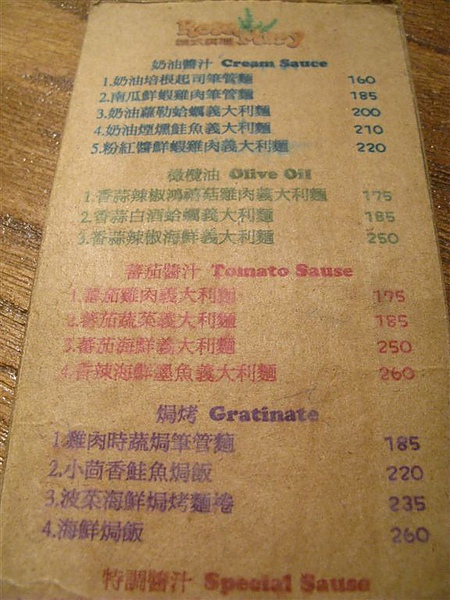 Rosemary
義式料理
奶油醬汁 Cream Sauce
1.奶油培根起司筆管麵 160
2.南瓜鮮蝦雞肉筆管麵 185
3.奶油蘿勒蛤蠣義大利麵 200
4.奶油煙燻鮭魚義大利麵 210
5.粉紅醬鮮蝦雞肉義大利麵 220
橄欖油 Olive Oil
1.香蒜辣椒鴻禧菇雞肉義大利麵 175
2.香蒜白酒蛤蠣義大利麵 185
3.香蒜辣椒海鮮義大利麵 250
蕃茄醬汁 Tomato Sause
1.蕃茄雞肉義大利麵 175
2.蕃茄蔬菜義大利麵 185
3.蕃茄海鮮義大利麵 250
4.香辣海鮮墨魚義大利麵 260
焗烤 Gratinate
1.雞肉時蔬焗筆管麵 185
2.小茴香鮭魚焗飯 220
3.波菜海鮮焗烤麵捲 235
4.海鮮焗飯 260
特調醬汁 Special Sause